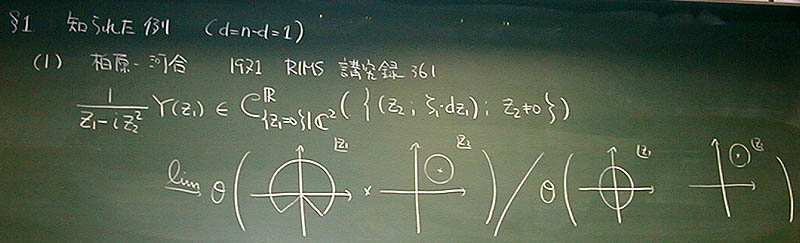 §1 知られた例 (d=n-d=1)
(1) 柏原-河合 1971 RIMS 講究録 361
\frac{1}{z_1-iz_2^2} Y(z_1) ∈ C^ℝ_{\{z_1=0\}|ℂ^2} ( { (z_2; ζ_1·dz_1); z_2≠0 } )
lim→ O ( z_1 × z_2 ) / O ( z_1 z_2 )